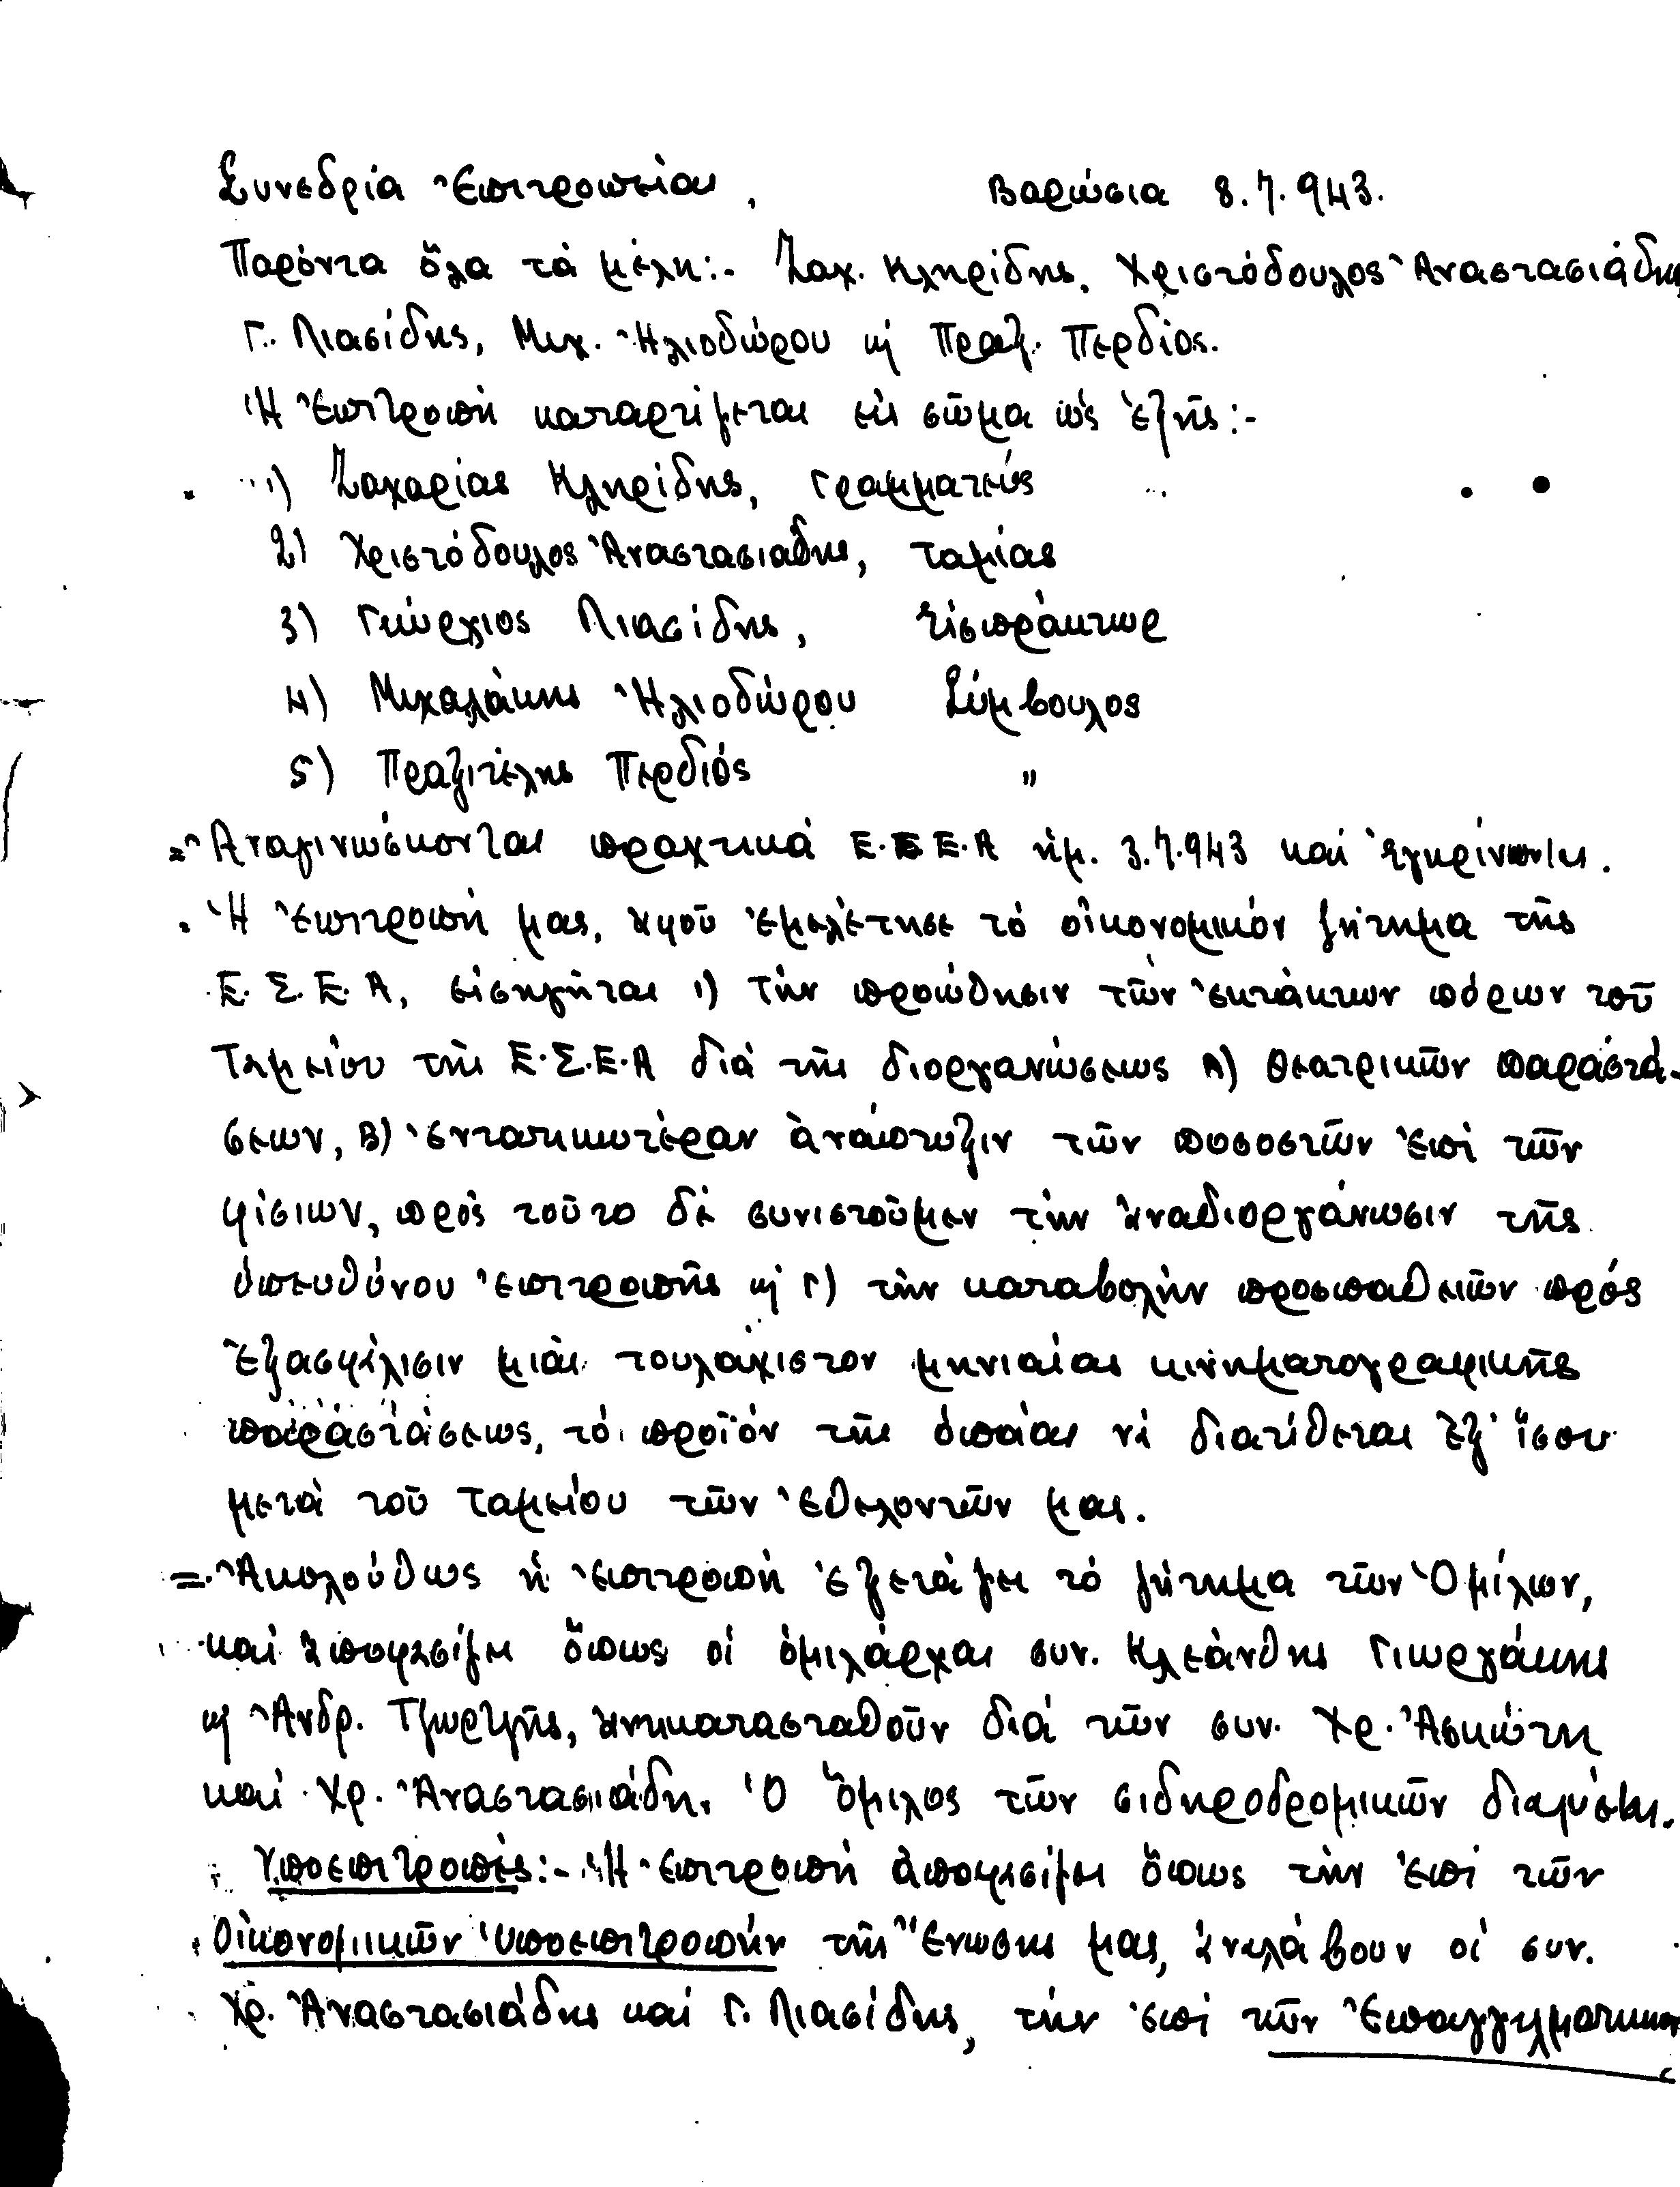 Συνεδρία Ἐπιτροπείας, Βαρώσια 8.7.943.
Παρόντα ὅλα τὰ μέλη:- Ζαχ. Κληρίδης, Χριστόδουλος Ἀναστασιάδης,
Γ. Λιασίδης, Μιχ. Ἡλιοδώρου κ' Πραξ. Περδίος.
Ἡ Ἐπιτροπὴ καταρτίζεται εἰς σῶμα ὡς ἑξῆς:-
1) Ζαχαρίας Κληρίδης, Γραμματεύς
2) Χριστόδουλος Ἀναστασιάδης, ταμίας
3) Γεώργιος Λιασίδης, Εἰσπράκτωρ
4) Μιχαλάκης Ἡλιοδώρου Σύμβουλος
5) Πραξιτέλης Περδιός "
= Ἀναγινώσκονται πραχτικά Ε.Σ.Ε.Α ἡμ. 3.7.943 καί ἐγκρίνονται.
Ἡ ἐπιτροπή μας, ἀφοῦ ἐμελέτησε τὸ οἰκονομικόν ζήτημα τῆς
Ε.Σ.Ε.Α, εἰσηγῆται 1) Τὴν προώθησιν τῶν ἐκτάκτων πόρων τοῦ
Ταμείου τῆς Ε.Σ.Ε.Α διὰ τῆς διοργανώσεως Α) θεατρικῶν παραστά-
σεων, Β) ἐντατικωτέραν ἀνάπτυξιν τῶν ποσοστῶν ἐπί τῶν
φίσιων, πρὸς τοῦτο δὲ συνιστοῦμεν τὴν ἀναδιοργάνωσιν τῆς
ὑπευθύνου ἐπιτροπῆς κ' Γ) τὴν καταβολὴν προσπαθειῶν πρός
ἐξασφάλισιν μιᾶς τουλάχιστον μηνιαίας κινηματογραφικῆς
παραστάσεως, τὸ προϊόν τῆς ὁποίας νὰ διατίθεται ἐξ ἴσου
μετὰ τοῦ ταμείου τῶν Ἐθελοντῶν μας.
= Ἀκολούθως ἡ ἐπιτροπὴ ἐξετάζει τὸ ζήτημα τῶν Ὁμίλων,
καί ἀποφασίζει ὅπως οἱ ὁμιλάρχαι συν. Κλεάνθης Γιωργάκης
κ' Ἀνδρ. Τζωρτζῆς, ἀντικατασταθοῦν διά τῶν συν. Χρ. Ἀσκώτη
καί Χρ. Ἀναστασιάδη. Ὁ ὅμιλος τῶν σιδηροδρομικῶν διαλύεται.
Ὑποεπιτροπές:- Ἡ ἐπιτροπὴ ἀποφασίζει ὅπως τὴν ἐπί τῶν
Οἰκονομικῶν ὑποεπιτροπὴν τῆς Ἕνωσης μας, ἀναλάβουν οἱ συν.
Χρ. Ἀναστασιάδης καί Γ. Λιασίδης, τὴν ἐπί τῶν Ἐπαγγελματικῶν